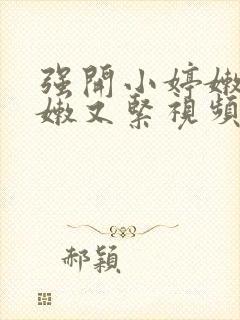 强開小婷嫩
嫩又緊視頻
郝穎